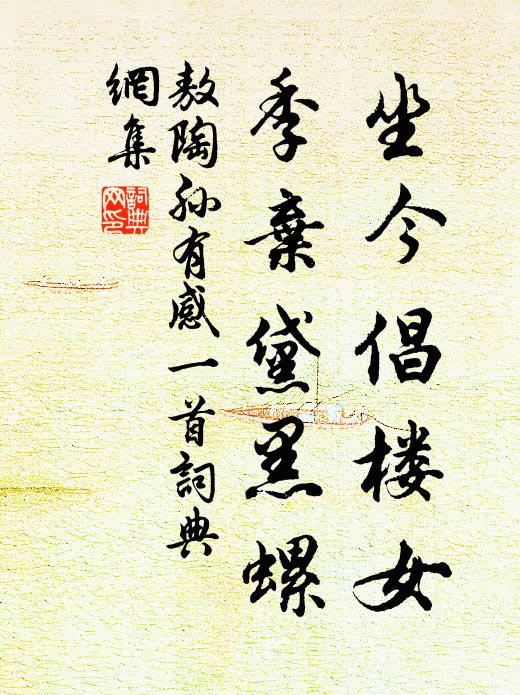 坐今倡楼女
季棄黛黑螺
敖陶孙有感一首詞典
網集
詞典
网印